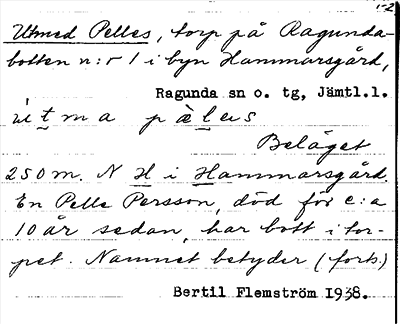 Utmed Pelles, torp på Ragunda-
botten n:r 1 i byn Hammarsgård,
Ragunda sn o. tg, Jämtl.l.
Beläget
250 m. N H i Hammarsgård.
En Pelle Persson, död för c:a
10 år sedan, har bott i tor-
pet. Namnet betyder (forts.)
Bertil Flemström 1938.